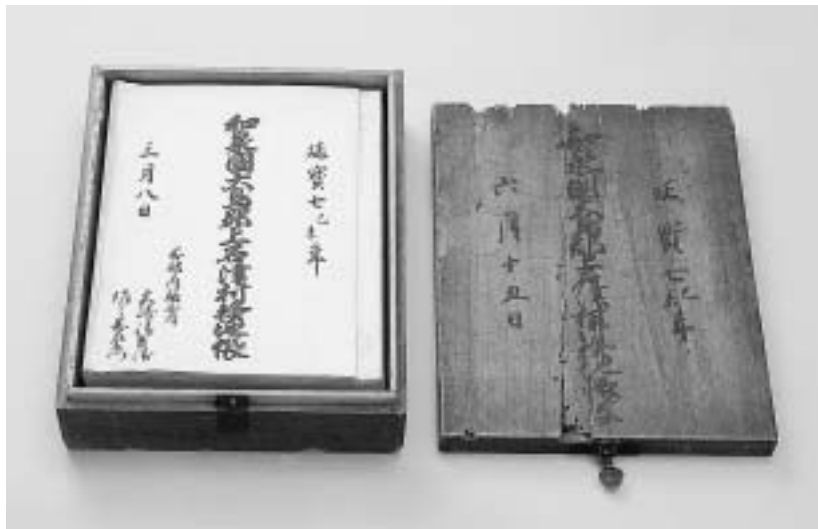 延寶七己未年
和泉國大鳥郡上石津村検地帳
三月八日
延寶七己未年
和泉國大鳥郡上石津村検地帳
六月十五日